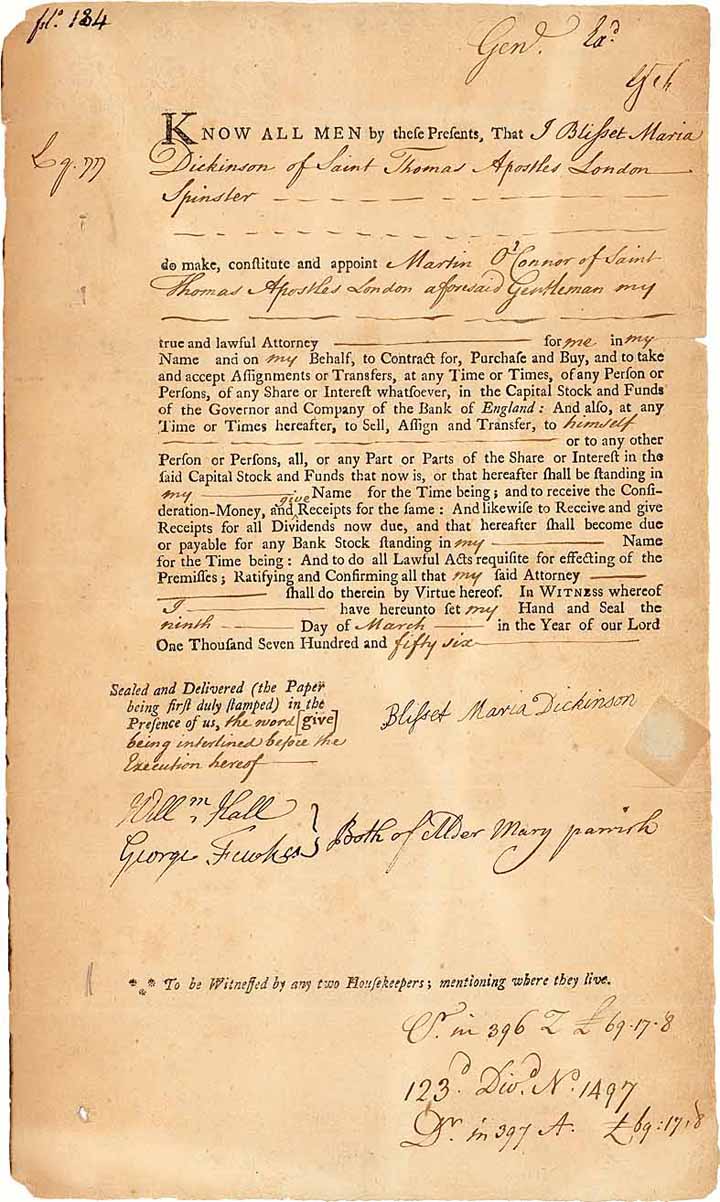 fol. 134
Gen.l Ex.d
L g. 77
KNOW ALL MEN by theſe Preſents, That I Bliſset Maria
Dickinson of Saint Thomas Apostles London
Spinster
do make, conſtitute and appoint Martin O'Connor of Saint
Thomas Apostles London aforesaid Gentleman my
true and lawful Attorney for me in my
Name and on my Behalf, to Contract for, Purchaſe and Buy, and to take
and accept Aſſignments or Transfers, at any Time or Times, of any Perſon or
Perſons, of any Share or Intereſt whatſoever, in the Capital Stock and Funds
of the Governor and Company of the Bank of England: And alſo, at any
Time or Times hereafter, to Sell, Aſſign and Transfer, to himself
or to any other
Perſon or Perſons, all, or any Part or Parts of the Share or Intereſt in the
ſaid Capital Stock and Funds that now is, or that hereafter ſhall be ſtanding in
my Name for the Time being; and to receive the Conſi-
deration-Money, and give Receipts for the ſame: And likewiſe to Receive and give
Receipts for all Dividends now due, and that hereafter ſhall become due
or payable for any Bank Stock ſtanding in my Name
for the Time being: And to do all Lawful Acts requiſite for effecting of the
Premiſſes; Ratifying and Confirming all that my ſaid Attorney
ſhall do therein by Virtue hereof. In WITNESS whereof
I have hereunto ſet my Hand and Seal the
ninth Day of March in the Year of our Lord
One Thouſand Seven Hundred and fifty six
Sealed and Delivered (the Paper
being firſt duly ſtamped) in the
Preſence of us, the word [give]
being interlined before the
Execution hereof
Bliſset Maria Dickinson
Will.m Hall
George Fewkes } Both of Alder Mary parrish
*** To be Witneſſed by any two Houſekeepers; mentioning where they live.
Cr. in 396 Z £69.17.8
123.d Div.d No. 1497
Dr. in 397 A. £69:17.8